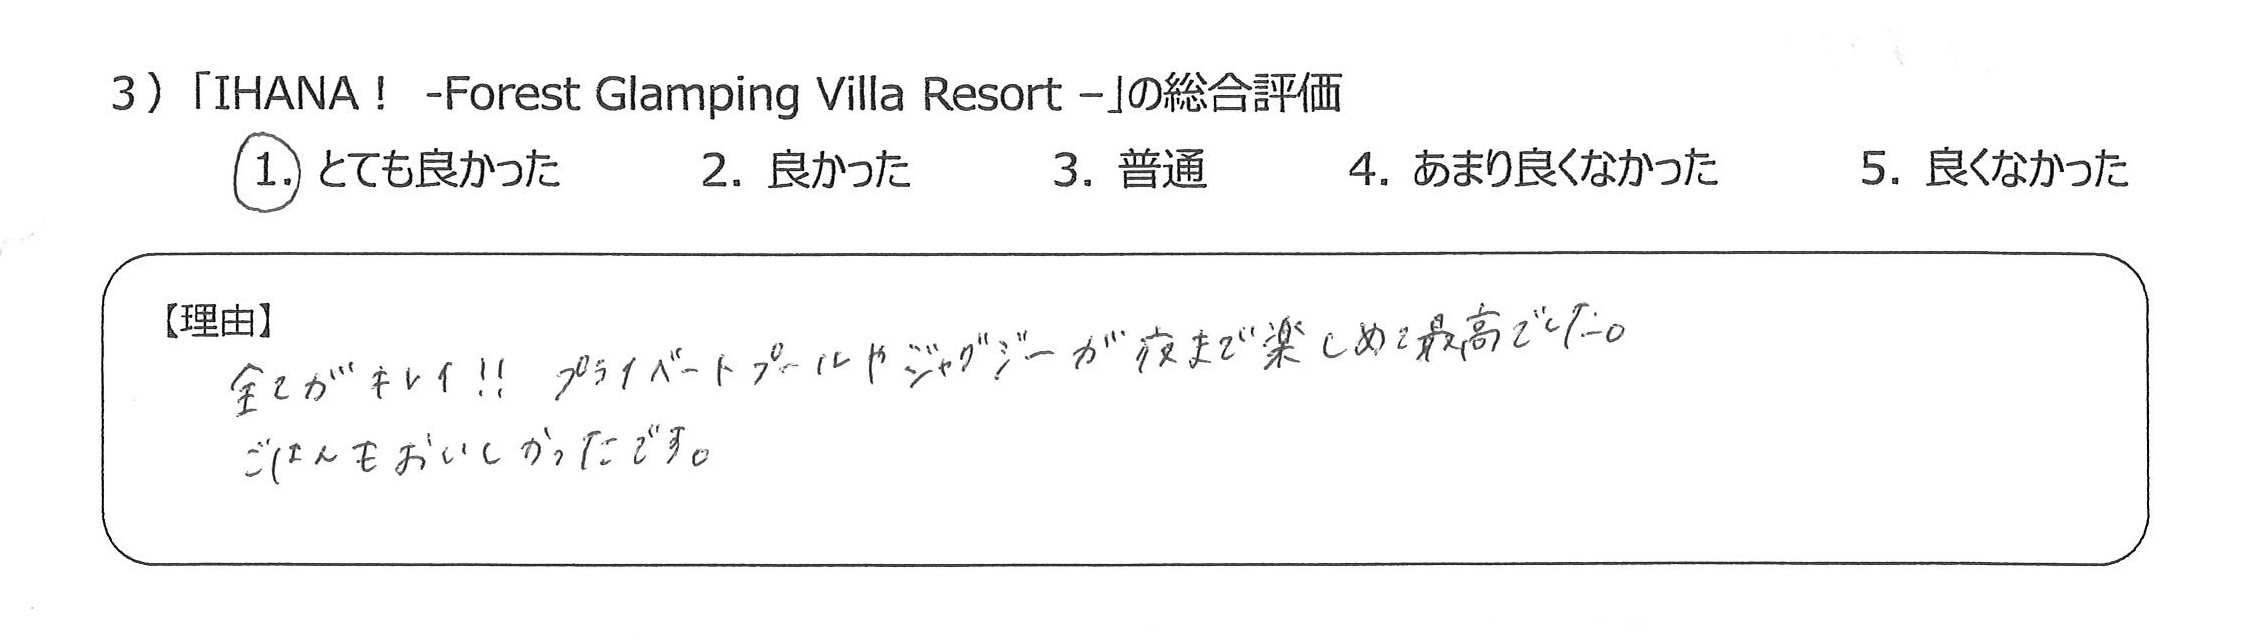 3）「IHANA！ -Forest Glamping Villa Resort –」の総合評価
1. とても良かった 2. 良かった 3. 普通 4. あまり良くなかった 5. 良くなかった
【理由】
全てがキレイ!! プライベートプールやジャグジーが夜まで楽しめて最高でした。
ごはんもおいしかったです。